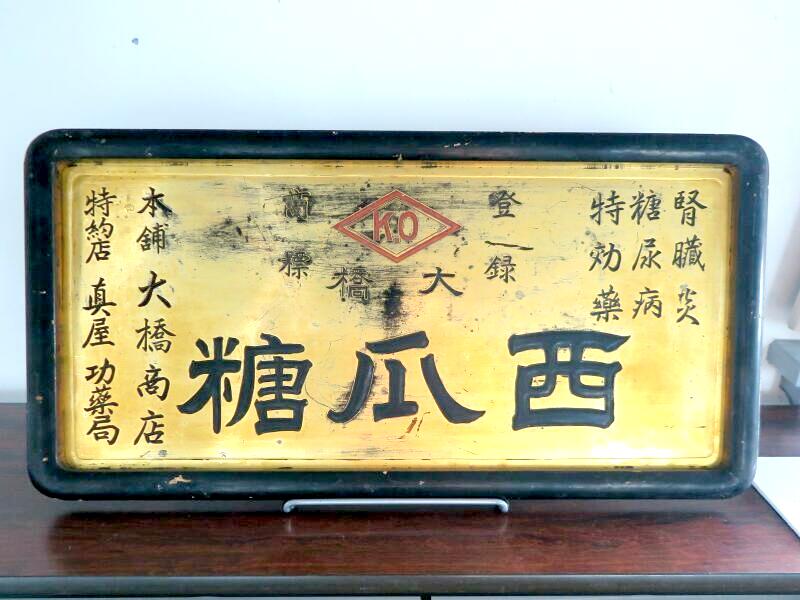 腎臓炎
糖尿病
特効薬
登録
商標
K.O
大橋
西瓜糖
本舗 大橋商店
特約店 真屋功薬局